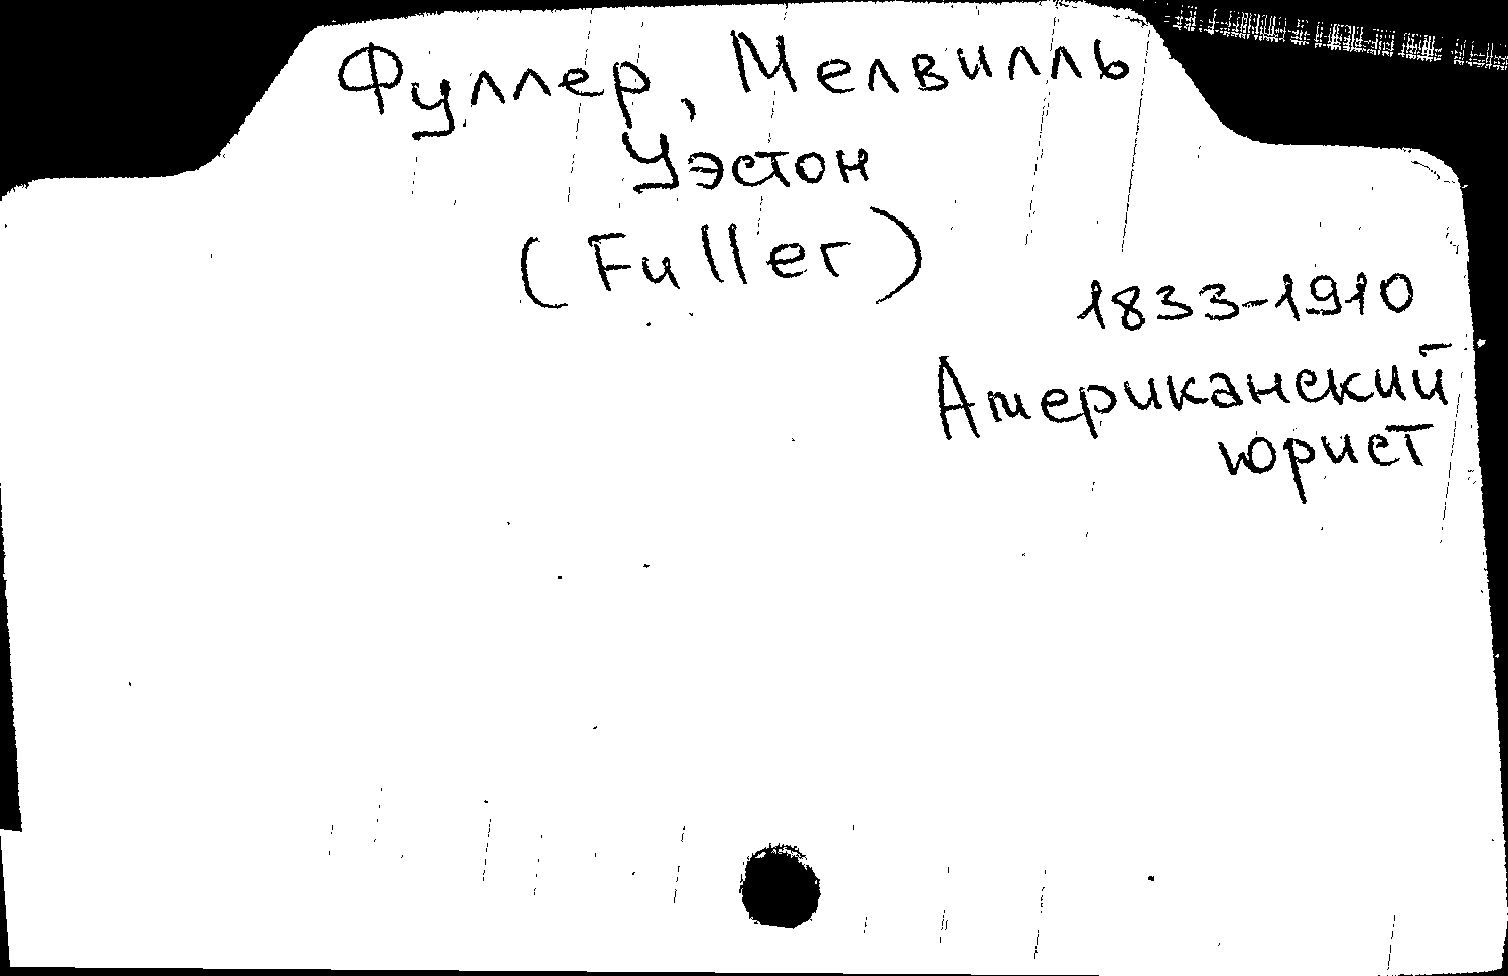 Фуллер, Мелвилль
Уэстон
(Fuller)
1833-1910
Американский
юрист